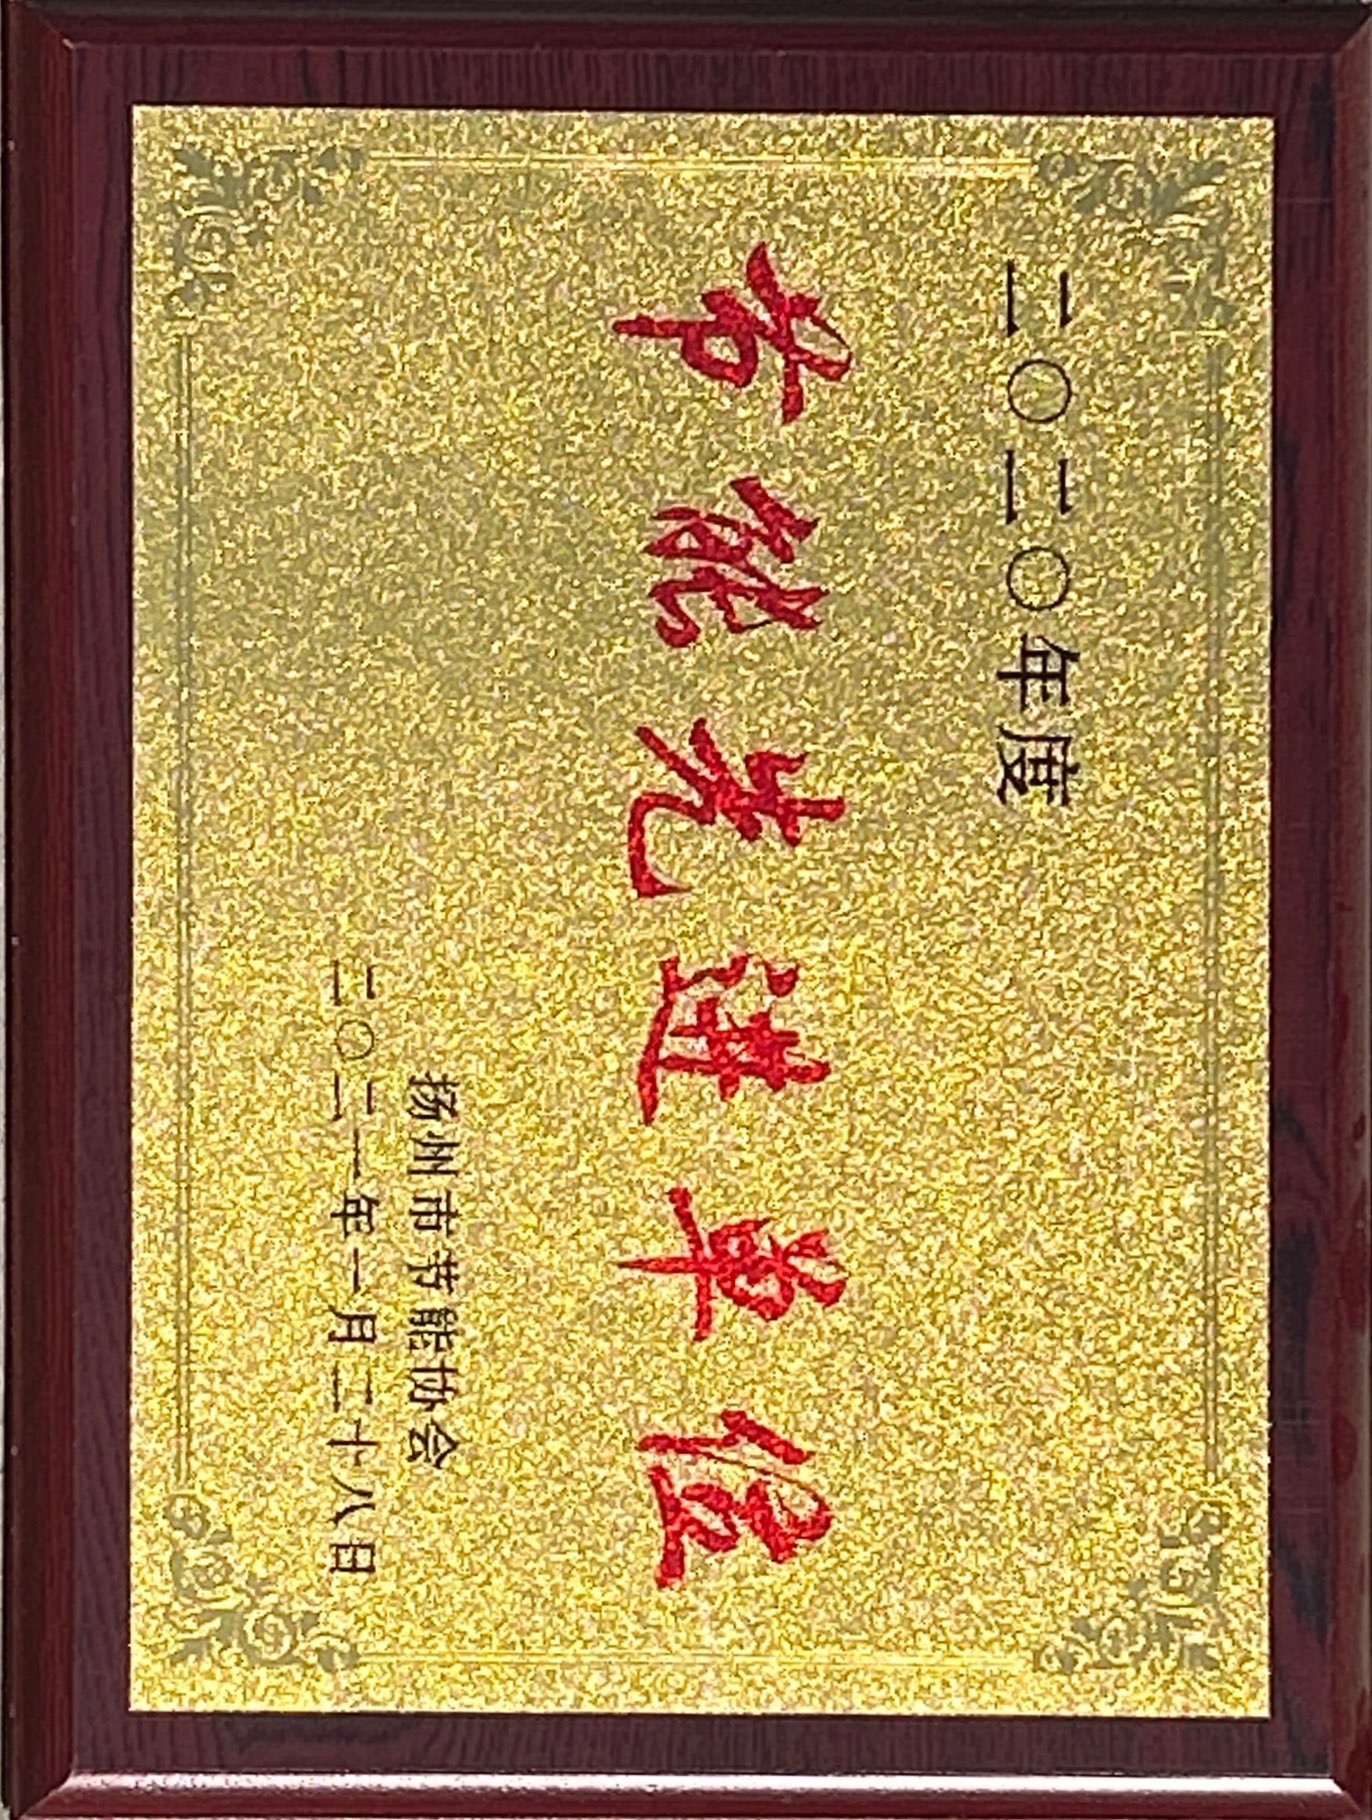 二〇二〇年度
节能先进单位
扬州市节能协会
二〇二一年一月二十八日